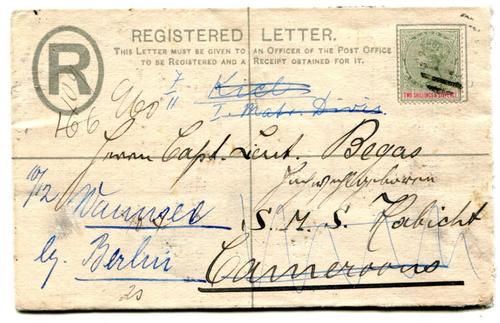 REGISTERED LETTER.
THIS LETTER MUST BE GIVEN TO AN OFFICER OF THE POST OFFICE
TO BE REGISTERED AND A RECEIPT OBTAINED FOR IT.
R
TWO SHILLINGS & SIXPENCE
7/II Kiel
I. Matr. Divis.
Herrn Capt. Lieut. Begas
Hochwohlgeboren
10/12 Wannsee S. M. S. Habicht
by. Berlin Cameroons